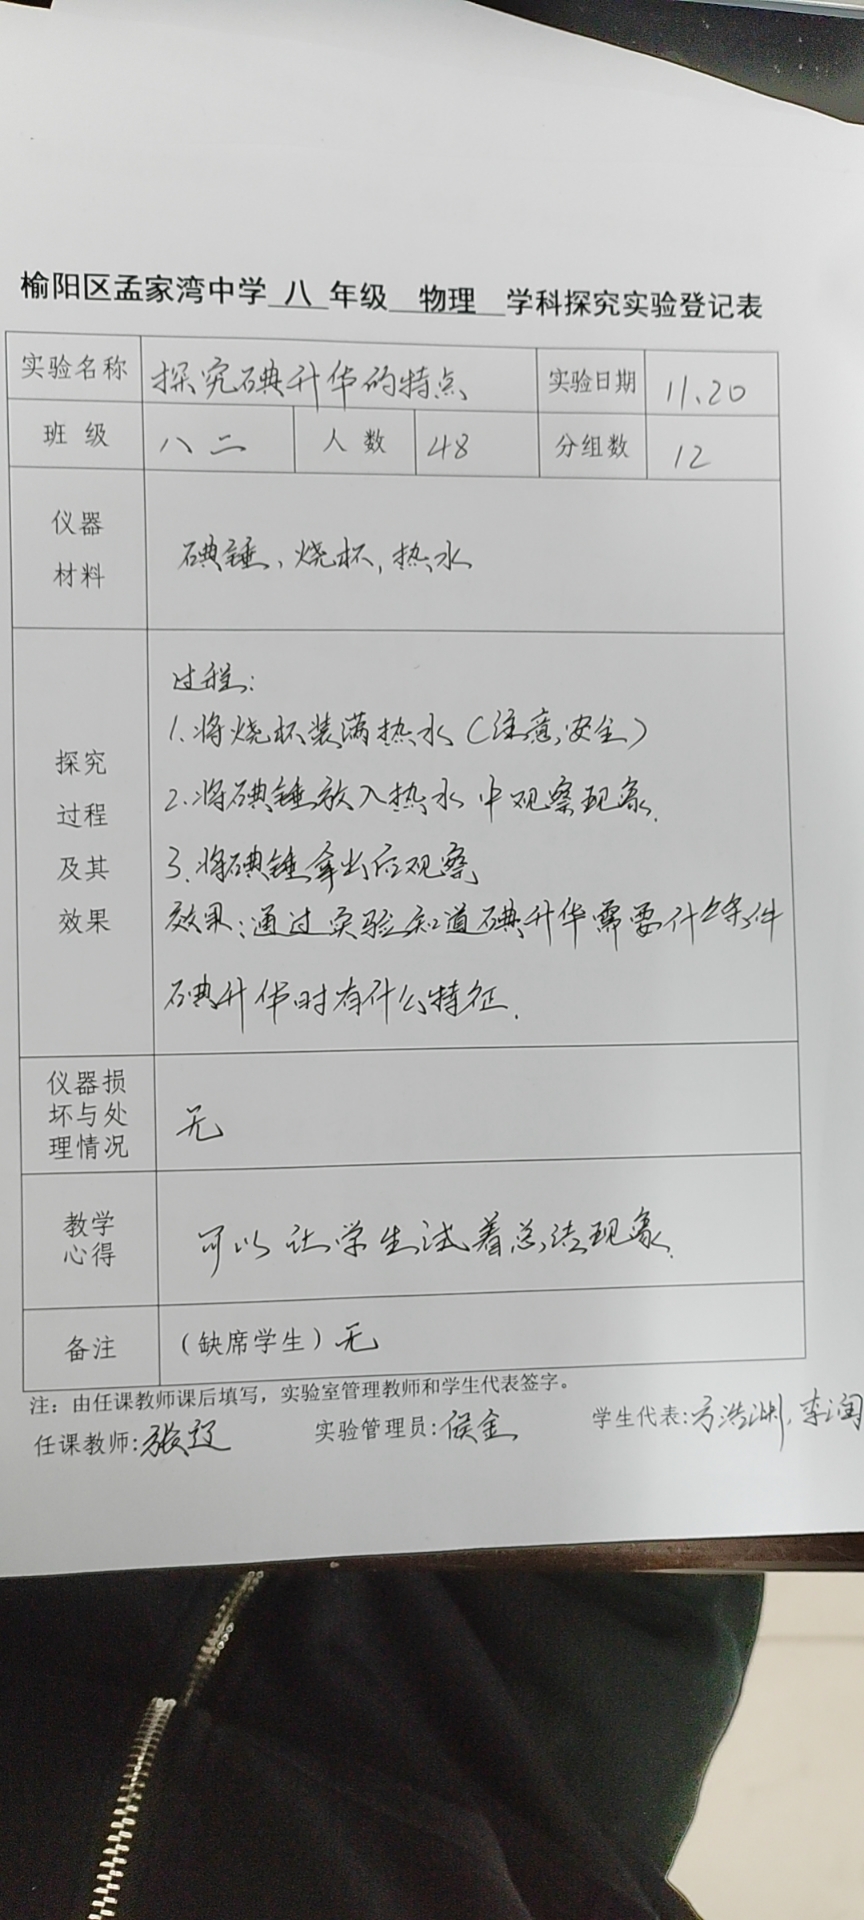 榆阳区孟家湾中学 八 年级 物理 学科探究实验登记表
实验名称 探究碘升华的特点 实验日期 11.20
班级 八二 人数 48 分组数 12
仪器
材料
碘锤、烧杯,热水
探究
过程
及其
效果
过程:
1.将烧杯装满热水(注意安全)
2.将碘锤放入热水中观察现象.
3.将碘锤拿出后观察
效果:通过实验知道碘升华需要什么条件
碘升华时有什么特征.
仪器损
坏与处
理情况
无
教学
心得
可以让学生试着总结现象.
备注 (缺席学生)无
注:由任课教师课后填写,实验室管理教师和学生代表签字。
任课教师:张 实验管理员:侯金 学生代表:方浩渊,李润